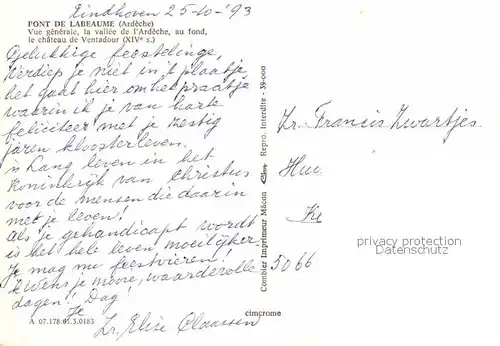 Eindhoven 25-10-'93
PONT DE LABEAUME (Ardèche)
Vue générale, la vallée de l'Ardèche, au fond,
le château de Ventadour (XIVe s.)
Gelukkige feestelinge,
Verdiep je niet in 't plaatje
het gaat hier om het praatje
waarin ik je van harte
feliciteer met je zestig
jaren kloosterleven.
'n Lang leven in het
Koninkrijk van Christus
voor de mensen die daarin
met je leven!
Als je gehandicapt wordt
is het hele leven moeilijker
Je mag nu feestvieren!
Ik wens je mooie, waardevolle
dagen! Dag!
Je
Zr. Elise Claassen
A 07.178.01.3.0183
cimcrome
Combier Imprimeur Mâcon
Repro. Interdite - 39-000
Zr. Francis Zwartjes
Hui
Ke
5066
privacy protection
Datenschutz